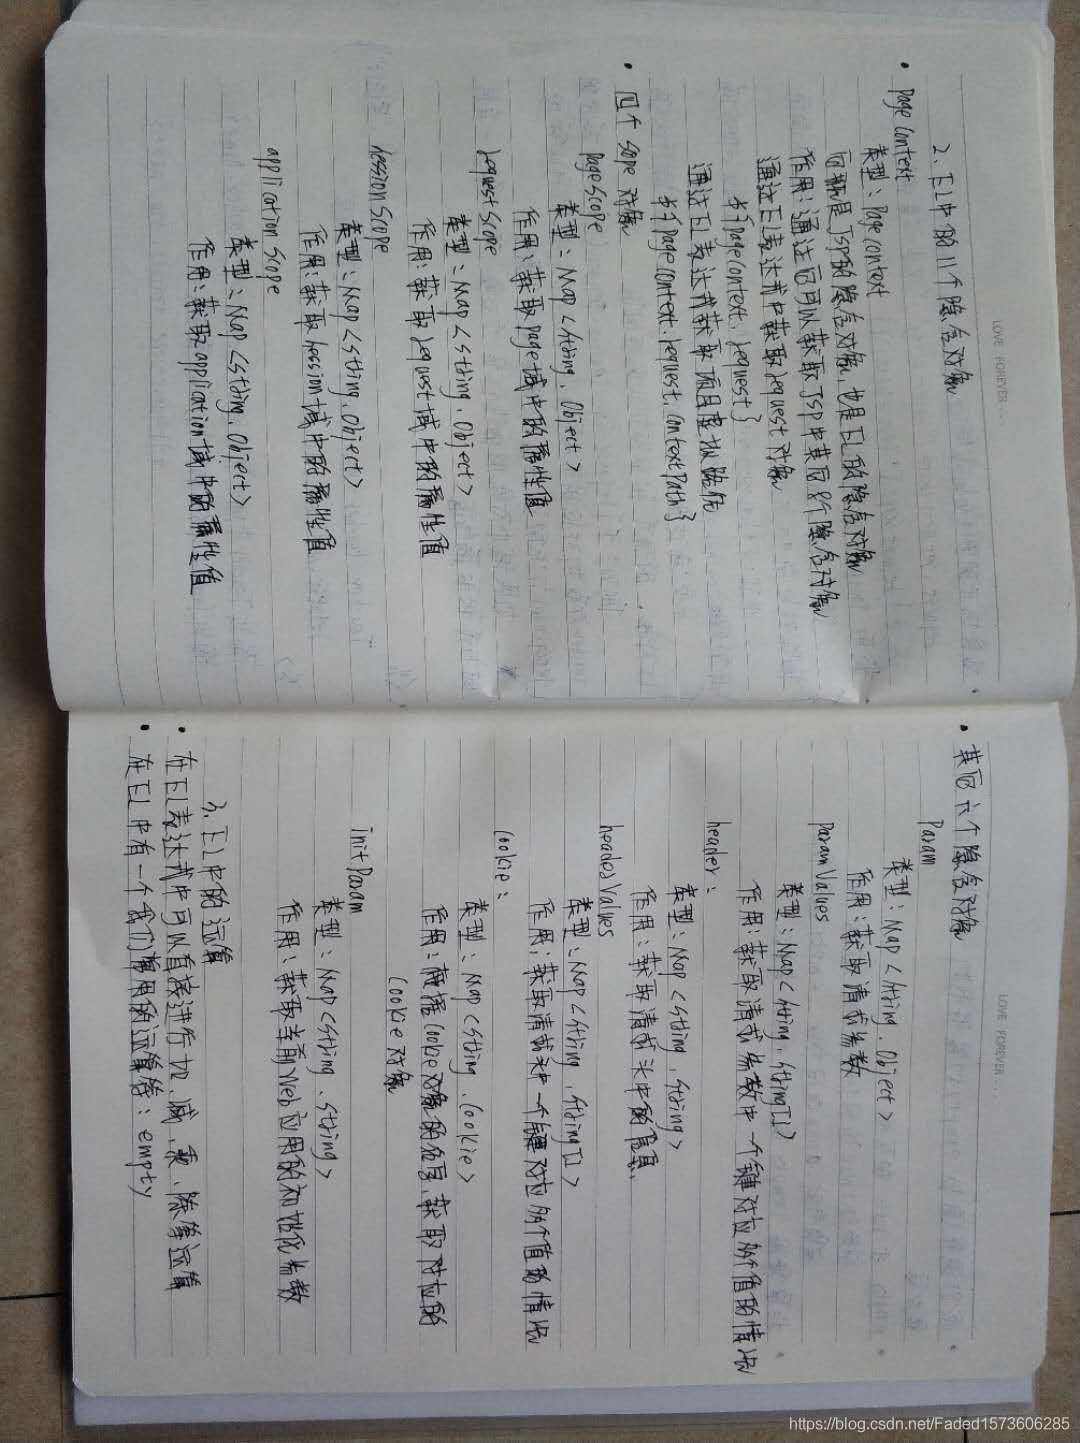 LOVE FOREVER...
2. EL中的11个隐含对象
• pageContext
类型:pageContext
同既是JSP的隐含对象,也是EL的隐含对象
作用:通过它可以获取JSP中其它8个隐含对象
通过EL表达式中获取request对象
${pageContext.request}
通过EL表达式获取项目虚拟路径
${pageContext.request.contextPath}
• 四个scope对象
pageScope
类型:Map<String, Object>
作用:获取page域中的属性值
requestScope
类型:Map<String, Object>
作用:获取request域中的属性值
sessionScope
类型:Map<String, Object>
作用:获取session域中的属性值
applicationScope
类型:Map<String, Object>
作用:获取application域中的属性值
LOVE FOREVER...
• 其它六个隐含对象
Param
类型:Map<String, Object>
作用:获取请求参数
paramValues
类型:Map<String, String[]>
作用:获取请求参数中一个键对应多个值的情况
header:
类型:Map<String, String>
作用:获取请求头中的信息.
headerValues
类型:Map<String, String[]>
作用:获取请求头中一个键对应多个值的情况
Cookie:
类型:Map<String, Cookie>
作用:根据Cookie对象的名字,获取对应的
Cookie对象
initParam
类型:Map<String, String>
作用:获取当前Web应用的初始化参数
3. EL中的运算
• 在EL表达式中可以直接进行加、减、乘、除等运算
• 在EL中有一个我们常用的运算符:empty
https://blog.csdn.net/Faded1573606285